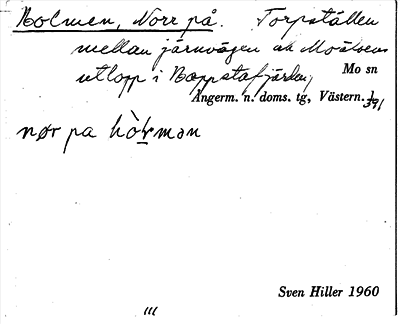 Holmen, Norr på. Torpställen
mellan järnvägen och Moälvens
utlopp i Happstafjärden,
Mo sn
Ångerm. n. doms. tg, Västern. l.
391
nør pa hò̀ɽmən
Sven Hiller 1960